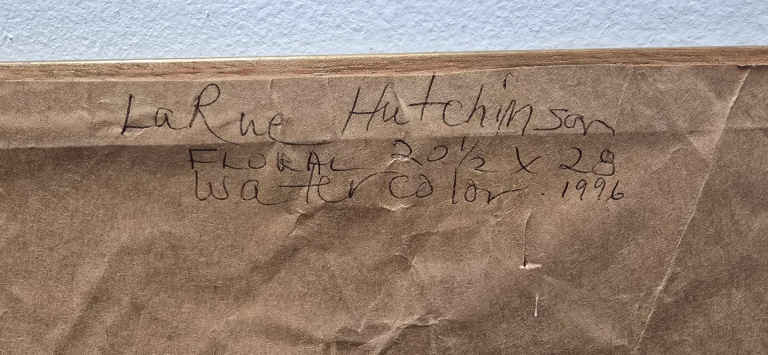 LaRue Hutchinson
FLORAL 20 1/2 X 28
Watercolor. 1996